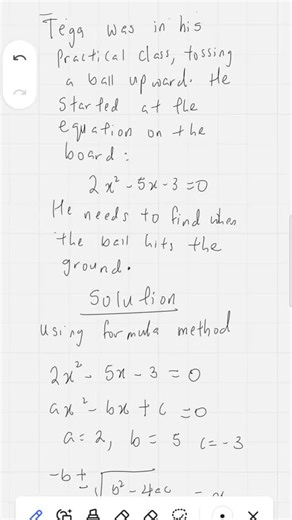 Tega was in his
practical class, tossing
a ball upward. He
Started at the
equation on the
board:
2x² - 5x - 3 = 0
He needs to find when
the ball hits the
ground.
Solution
using formula method
2x² - 5x - 3 = 0
ax² - bx + c = 0
a = 2, b = 5 c = -3
-b ± √b² - 4ac = x